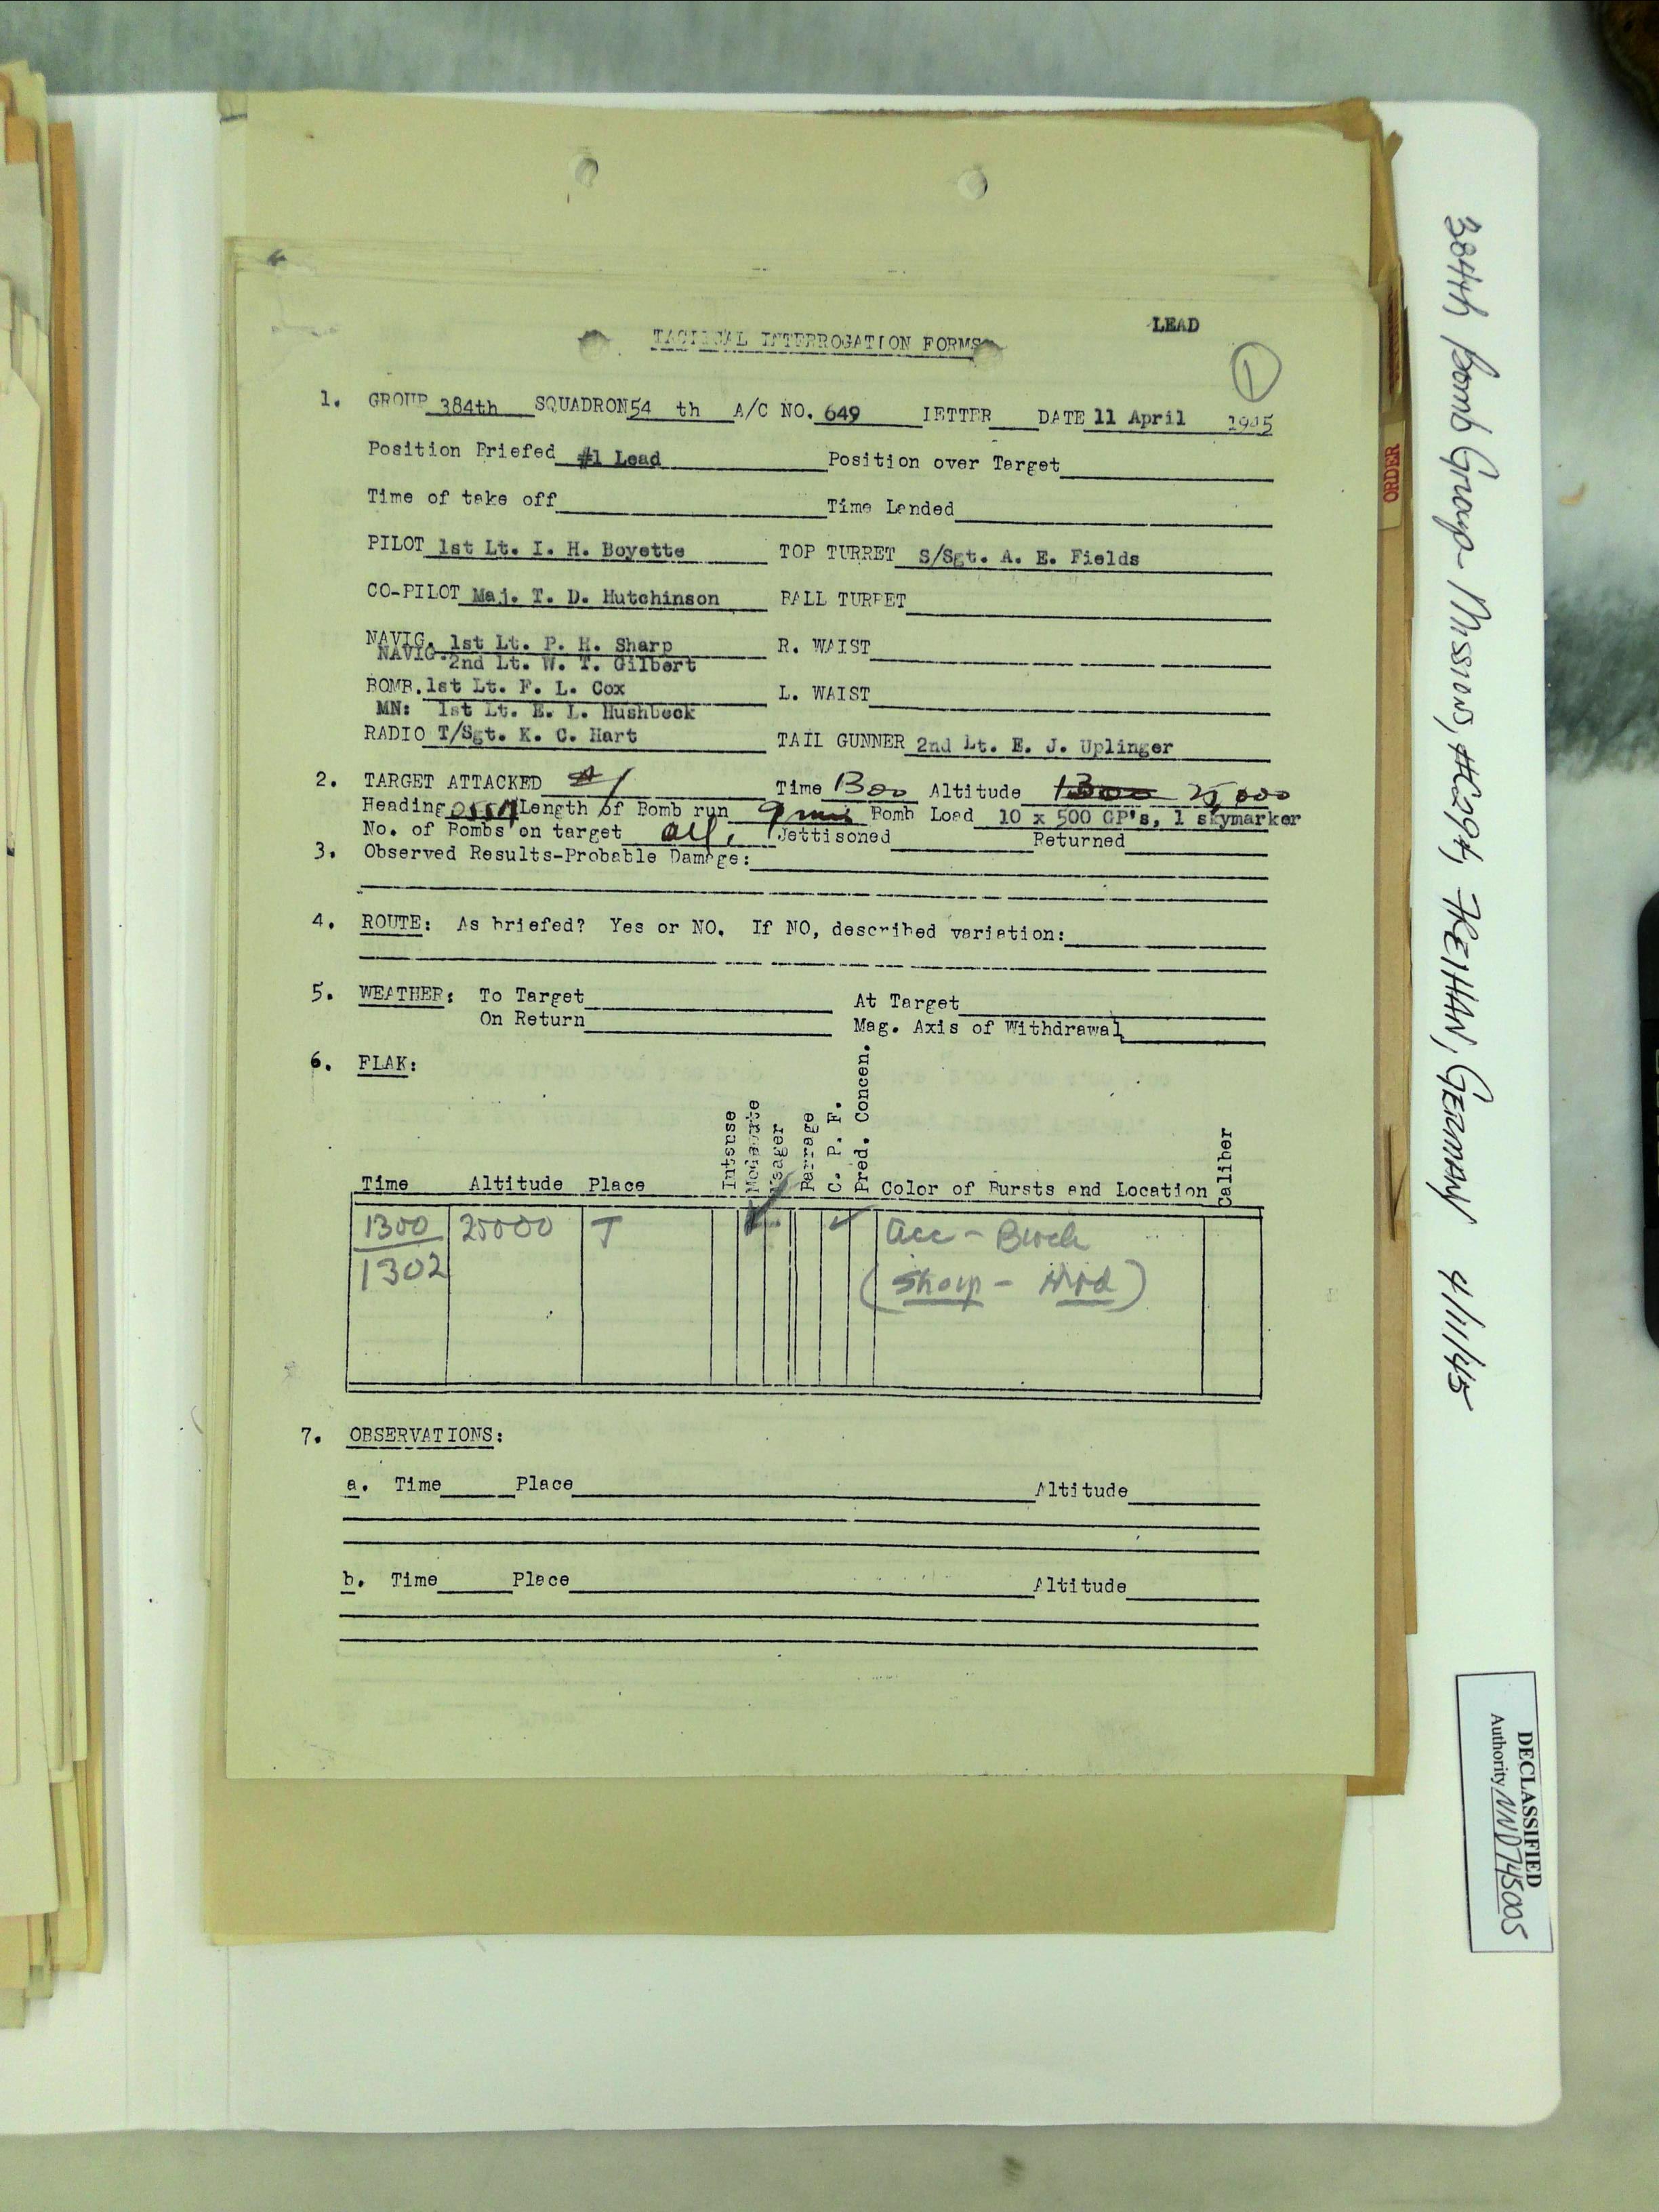 LEAD
TACTICAL INTERROGATION FORMS
1
1. GROUP 384th SQUADRON 54 th A/C NO. 649 LETTER DATE 11 April 1945
Position Briefed #1 Lead Position over Target
Time of take off Time Landed
PILOT 1st Lt. I. H. Boyette TOP TURRET S/Sgt. A. E. Fields
CO-PILOT Maj. T. D. Hutchinson BALL TURRET
NAVIG. 1st Lt. P. H. Sharp R. WAIST
NAVIG. 2nd Lt. W. T. Gilbert
BOMB. 1st Lt. F. L. Cox L. WAIST
MN: 1st Lt. E. L. Hushbeck
RADIO T/Sgt. K. C. Hart TAIL GUNNER 2nd Lt. E. J. Uplinger
2. TARGET ATTACKED #1 Time 1300 Altitude 1300 25,000
Heading Length of Bomb run 9 min Bomb Load 10 x 500 GP's, 1 skymarker
No. of Bombs on target all. Jettisoned Returned
3. Observed Results-Probable Damage:
4. ROUTE: As briefed? Yes or NO. If NO, described variation:
5. WEATHER: To Target At Target
On Return Mag. Axis of Withdrawal
6. FLAK:
Time Altitude Place Intsuse Moderate Meager Barrage C. P. F. Pred. Concen. Color of Bursts and Location Caliber
1300 25000 T acc - Black
1302 (Sharp - )
7. OBSERVATIONS:
a. Time Place Altitude
b. Time Place Altitude
ORDER
384th Bomb Group Missions, #294, FREIHAN, GERMANY 4/11/45
DECLASSIFIED
Authority NND745005